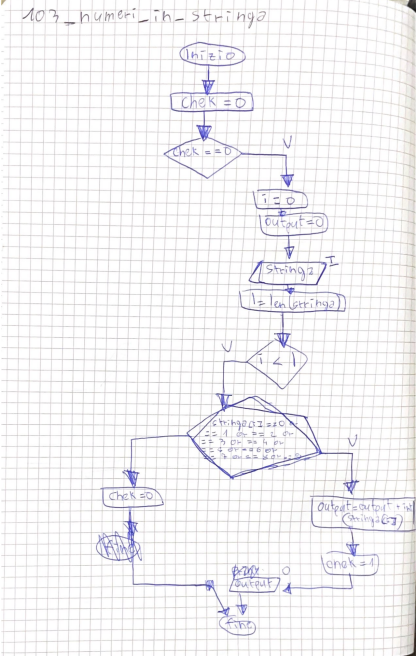 103_numeri_in_stringa
inizio
chek = 0
chek == 0
V
i = 0
output=0
stringa
I
l = len(stringa)
i < l
V
stringa[i]==0 or
== 1 or == 2 or
== 3 or == 4 or
V
chek=0
output=output + int
(stringa[i])
chek = 1
O
output
fine